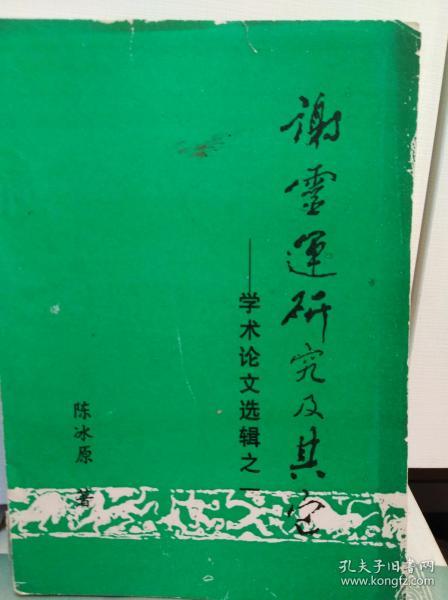 谢灵运研究及其它
——学术论文选辑之一
陈冰原 著
孔夫子旧书网
www.kongfz.com